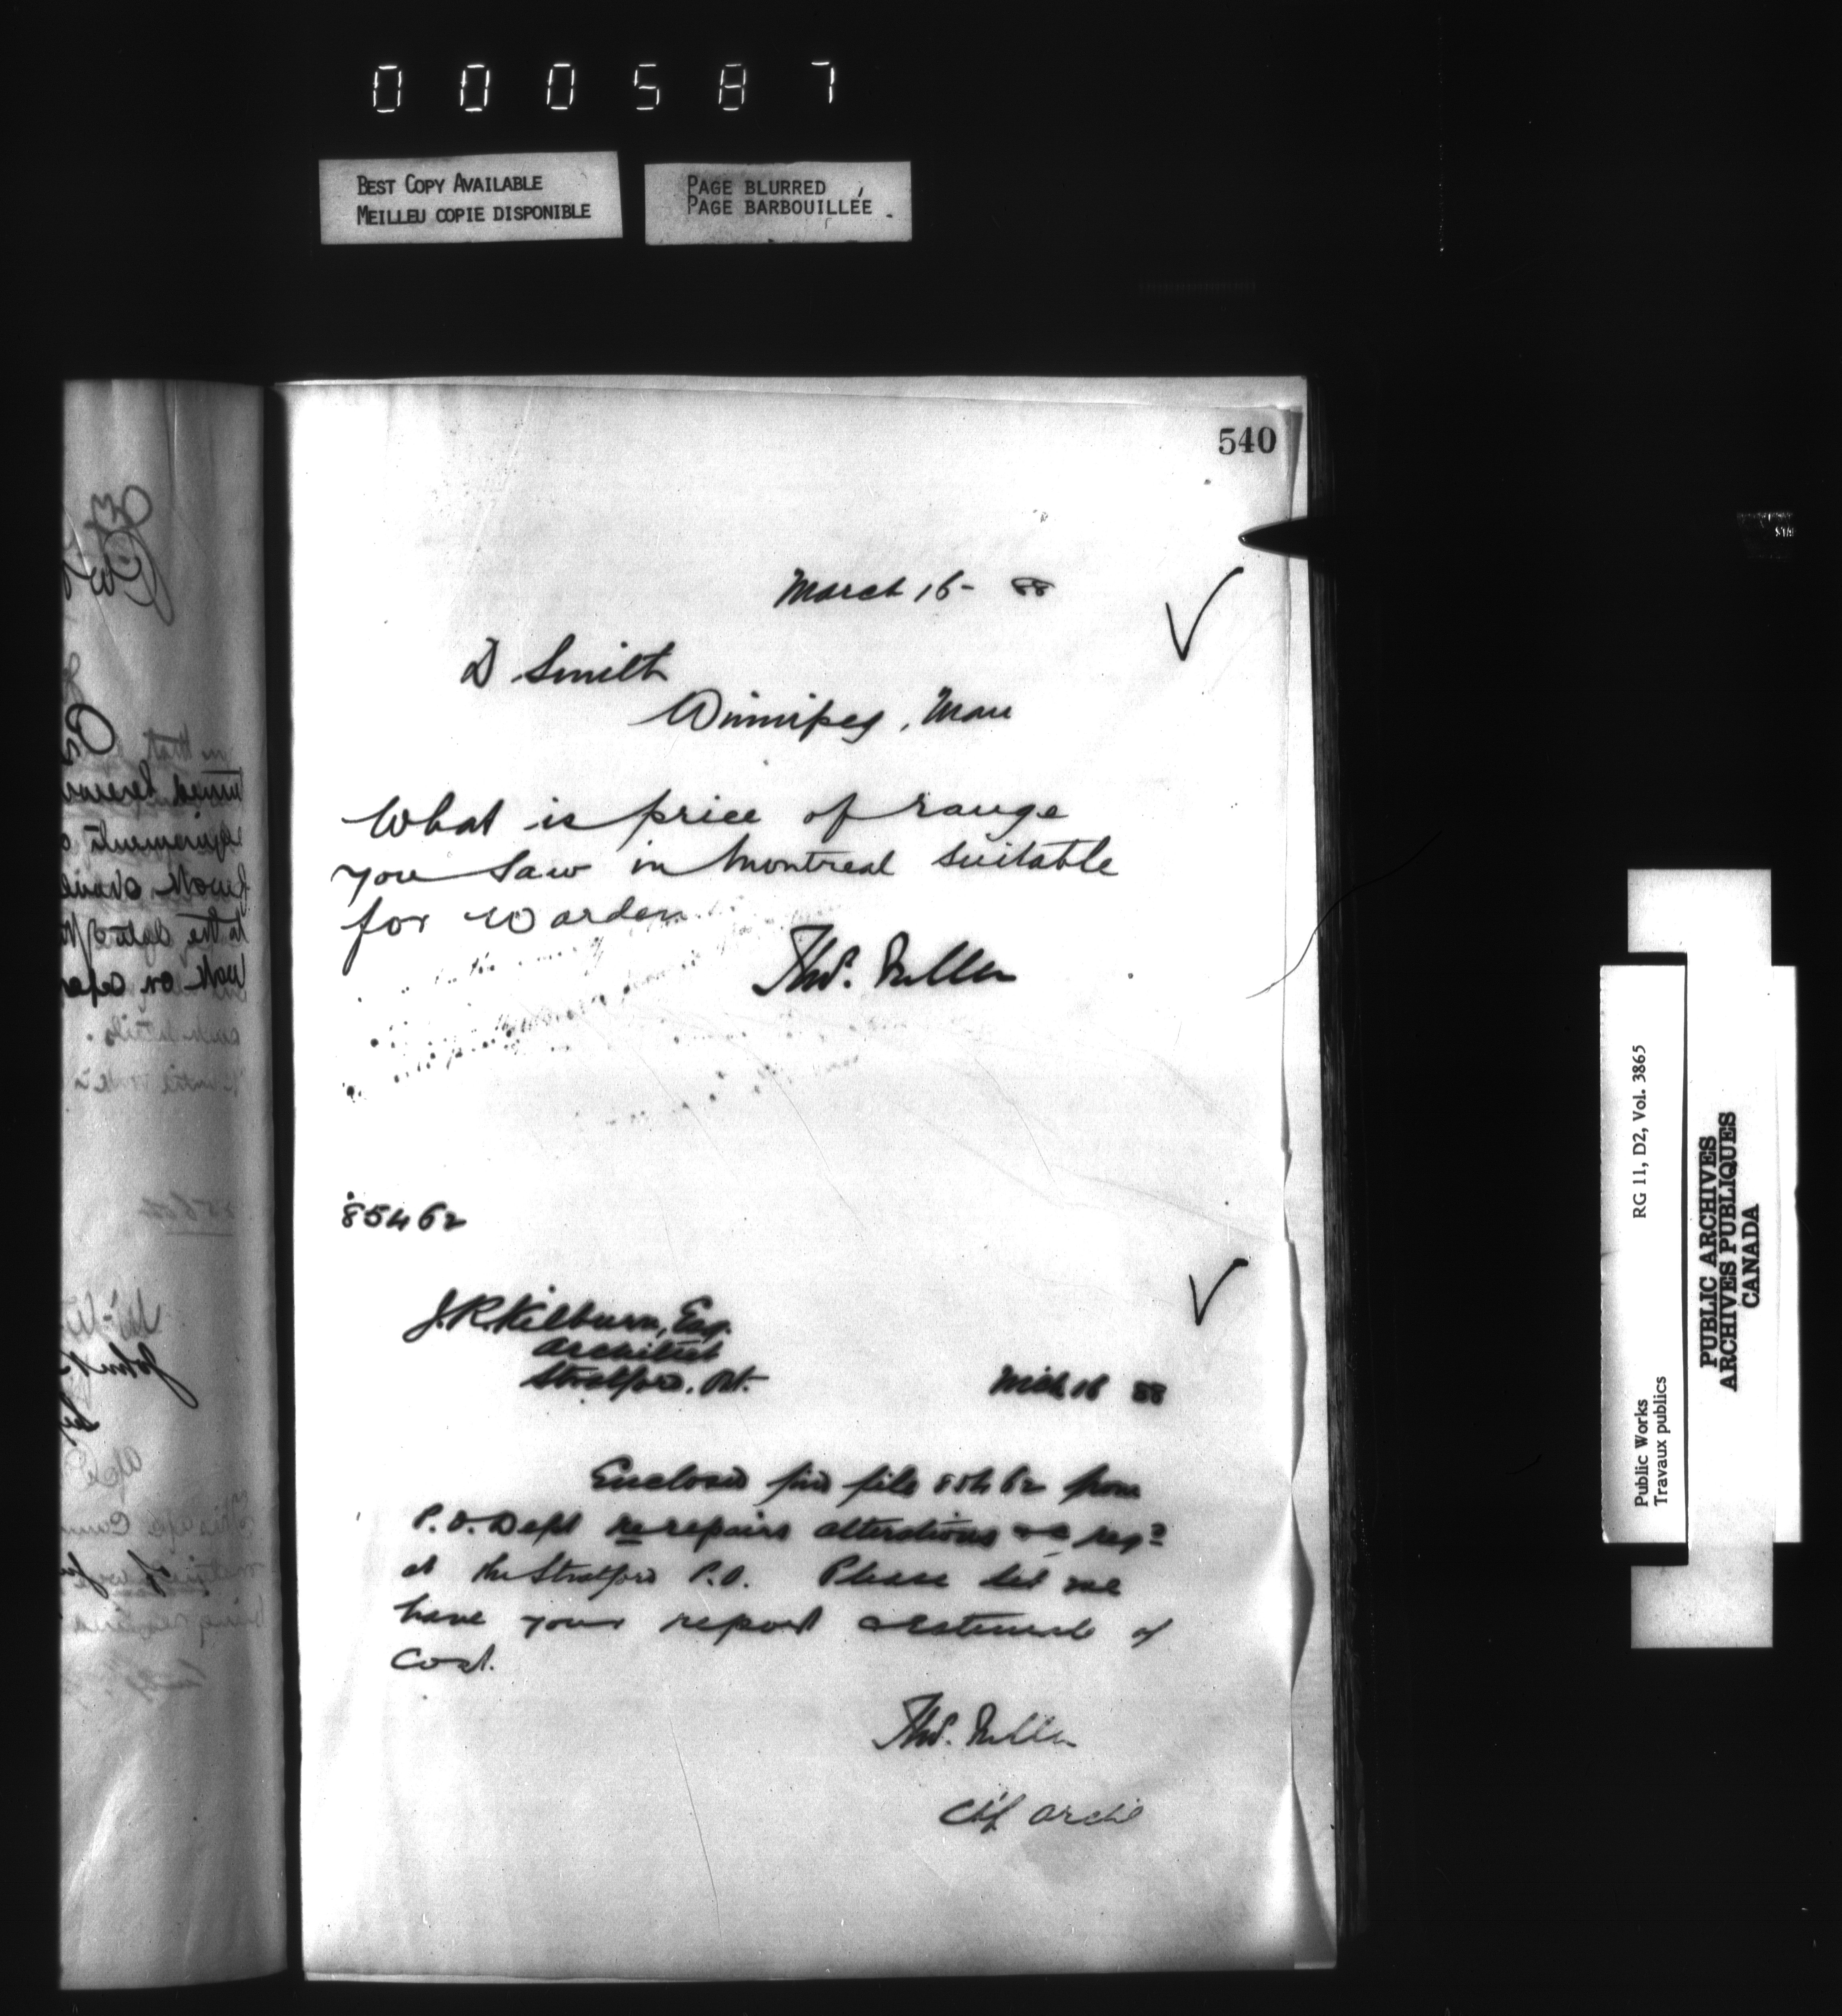 000587
BEST COPY AVAILABLE
MEILLEU COPIE DISPONIBLE
PAGE BLURRED
PAGE BARBOUILLÉE
540
March 16 - 88
D Smith
Winnipeg, Man
What is price of range
you saw in Montreal suitable
for warden
Thos. Fuller
85462
J.R. Kilburn, Esq.
Architect
Stratford, Ont.
Mch 16 88
Enclosed find file 85462 from
P.O. Dept re repairs alterations &c reqd
at the Stratford P.O. Please let me
have your report & estimate of
cost.
Thos. Fuller
Chf Archt
RG 11, D2, Vol. 3865
Public Works
Travaux publics
PUBLIC ARCHIVES
ARCHIVES PUBLIQUES
CANADA